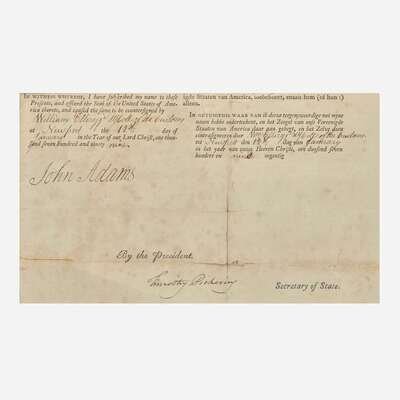 IN WITNESS WHEREOF, I have subscribed my name to these
Presents, and affixed the Seal of the United States of Ame-
rica thereto, and caused the same to be countersigned by
William Ellery of the Customs
at Newport the 12th day of
January in the Year of our Lord Christ, one thou-
sand seven hundred and ninety nine.
John Adams
nigde Staaten van America, toebehoort, staan hem (of hun)
alleen.
IN GETUIGENIS WAAR VAN ik deeze tegenwoordige met myne
naam hebbe ondertekent, en het Zeegel van myn Vereenigde
Staaten van America daar aan gehegt, en het Zelve doen
contrasigneren door Wm Ellery of the Customs
te Newport den 12th dag van January
in het jaar van onzen Heeren Christi, een duizend seven
honderd en nine negentig
By the President.
Timothy Pickering
Secretary of State.